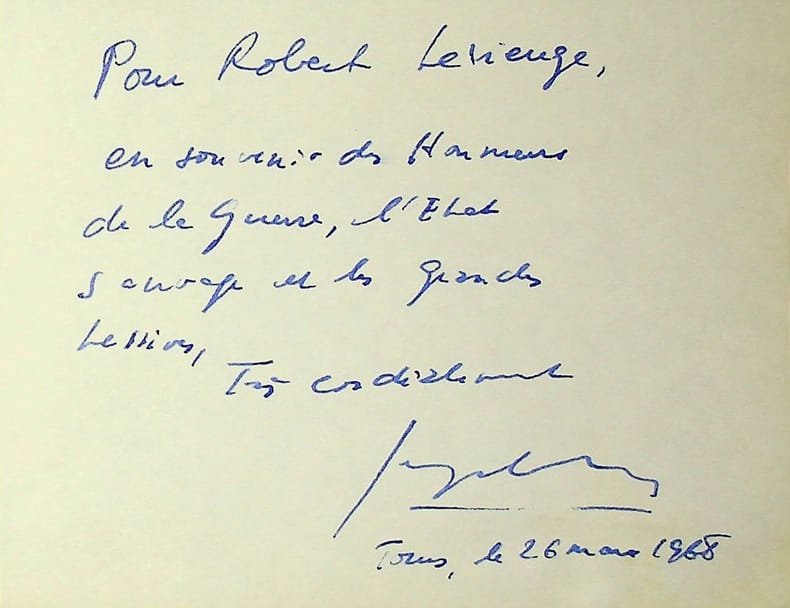 Pour Robert
en souvenir des Honneurs
de la Guerre, l'Etat
Sauvage et les Grandes
Lessives,
Très cordialement
Tours, le 26 mars 1968